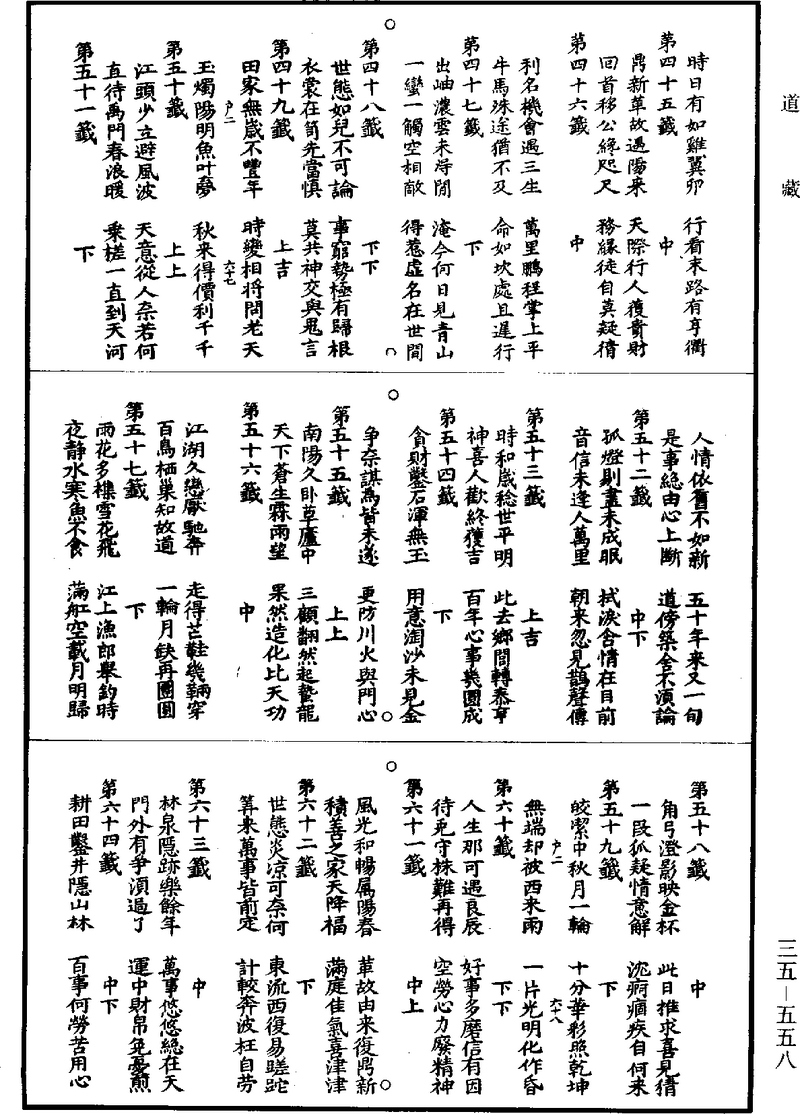 道藏
時日有如雞翼卵　行看末路有亨衢
第四十五籤　中
鼎新革故遇陽来　天際行人獲貴財
回首移公緣咫尺　務緣徒自莫疑猜
第四十六籤　中
利名機會遇三生　萬里鵬程掌上平
牛馬殊途猶不及　命如坎處且遲行
第四十七籤　下
出岫濃雲未得閒　淹今何日見青山
一蠻一觸空相敵　得惹虛名在世間
第四十八籤　下下
世態如兒不可論　事窮勢極有歸根
衣裳在笥先當慎　莫共神交與鬼言
第四十九籤　上吉
田家無歲不豐年　時變相將問老天
尸二　六十七
玉燭陽明魚叶夢　秋来得價利千千
第五十籤　上上
江頭少立避風波　天意從人奈若何
直待禹門春浪暖　乘槎一直到天河
第五十一籤　下
人情依舊不如新　五十年来又一旬
是事總由心上斷　道傍築舍不須論
第五十二籤　中下
孤燈剔盡未成眠　拭淚含情在目前
音信未逢人萬里　朝来忽見鵲聲傳
第五十三籤　上吉
時和歲稔世平明　此去鄉閭轉泰亨
神喜人歡終獲吉　百年心事幾圓成
第五十四籤　下
貪財鑿石渾無玉　用意淘沙未見金
争奈謀為皆未遂　更防川火與門心
第五十五籤　上上
南陽久卧草廬中　三顧翻然起蟄龍
天下蒼生霖雨望　果然造化比天功
第五十六籤　中
江湖久戀厭馳奔　走得芒鞋幾輛穿
百鳥栖巢知故道　一輪月缺再團圓
第五十七籤　下
雨花多樣雪花飛　江上漁郎舉釣時
夜静水寒魚不食　滿舡空載月明歸
第五十八籤　中
角弓澄影映金杯　此日推求喜見猜
一段狐疑情意解　沈痾痼疾自何来
第五十九籤　下
皎潔中秋月一輪　十分華彩照乾坤
尸二　六十八
無端却被西来雨　一片光明化作昏
第六十籤　下下
人生那可遇良辰　好事多磨信有因
待兎守株難再得　空勞心力廢精神
第六十一籤　中上
風光和暢屬陽春　革故由来復鼎新
積善之家天降福　滿庭佳氣喜津津
第六十二籤　下
世態炎凉可奈何　東流西復易蹉跎
筭来萬事皆前定　計較奔波枉自勞
第六十三籤　中
林泉隱跡樂餘年　萬事悠悠總在天
門外有爭須過了　運中財帛免憂煎
第六十四籤　中下
耕田鑿井隱山林　百事何勞苦用心
三五—五五八